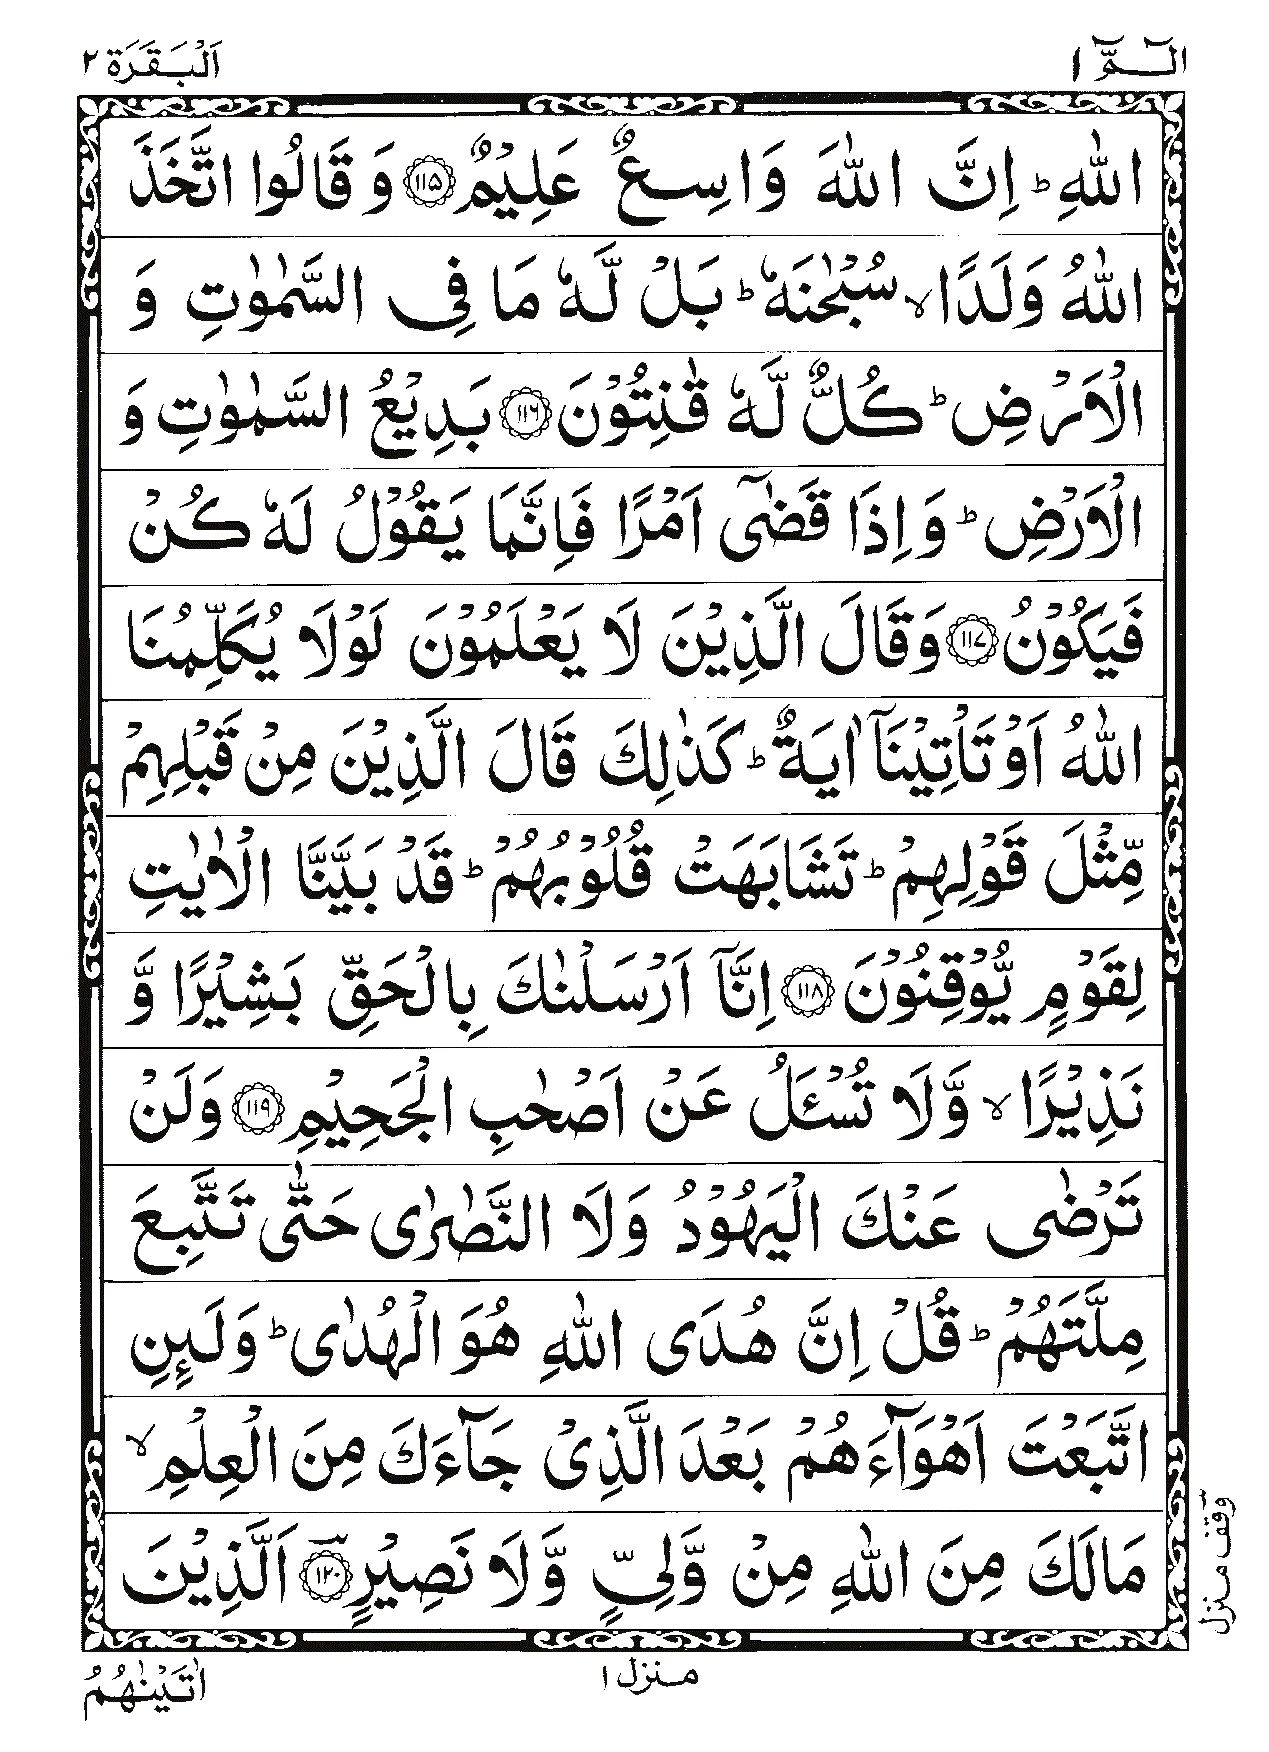 الٓمّٓ ۱
اَلْبَقَرَة ۲
اللّٰهِ ؕ اِنَّ اللّٰهَ وَاسِعٌ عَلِيْمٌ ۝۱۱۵ وَ قَالُوا اتَّخَذَ
اللّٰهُ وَلَدًا ۙ سُبْحٰنَهٗ ؕ بَلْ لَّهٗ مَا فِي السَّمٰوٰتِ وَ
الْاَرْضِ ؕ كُلٌّ لَّهٗ قٰنِتُوْنَ ۝۱۱۶ بَدِيْعُ السَّمٰوٰتِ وَ
الْاَرْضِ ؕ وَ اِذَا قَضٰٓى اَمْرًا فَاِنَّمَا يَقُوْلُ لَهٗ كُنْ
فَيَكُوْنُ ۝۱۱۷ وَقَالَ الَّذِيْنَ لَا يَعْلَمُوْنَ لَوْلَا يُكَلِّمُنَا
اللّٰهُ اَوْ تَاْتِيْنَاۤ اٰيَةٌ ؕ كَذٰلِكَ قَالَ الَّذِيْنَ مِنْ قَبْلِهِمْ
مِّثْلَ قَوْلِهِمْ ؕ تَشَابَهَتْ قُلُوْبُهُمْ ؕ قَدْ بَيَّنَّا الْاٰيٰتِ
لِقَوْمٍ يُّوْقِنُوْنَ ۝۱۱۸ اِنَّاۤ اَرْسَلْنٰكَ بِالْحَقِّ بَشِيْرًا وَّ
نَذِيْرًا ۙ وَّلَا تُسْـَٔلُ عَنْ اَصْحٰبِ الْجَحِيْمِ ۝۱۱۹ وَلَنْ
تَرْضٰى عَنْكَ الْيَهُوْدُ وَلَا النَّصٰرٰى حَتّٰى تَتَّبِعَ
مِلَّتَهُمْ ؕ قُلْ اِنَّ هُدَى اللّٰهِ هُوَ الْهُدٰى ؕ وَلَئِنِ
اتَّبَعْتَ اَهْوَآءَهُمْ بَعْدَ الَّذِيْ جَآءَكَ مِنَ الْعِلْمِ ۙ
مَا لَكَ مِنَ اللّٰهِ مِنْ وَّلِيٍّ وَّلَا نَصِيْرٍ ۝۱۲۰ اَلَّذِيْنَ
وقف منزل
منزل ۱
اٰتَيْنٰهُمُ